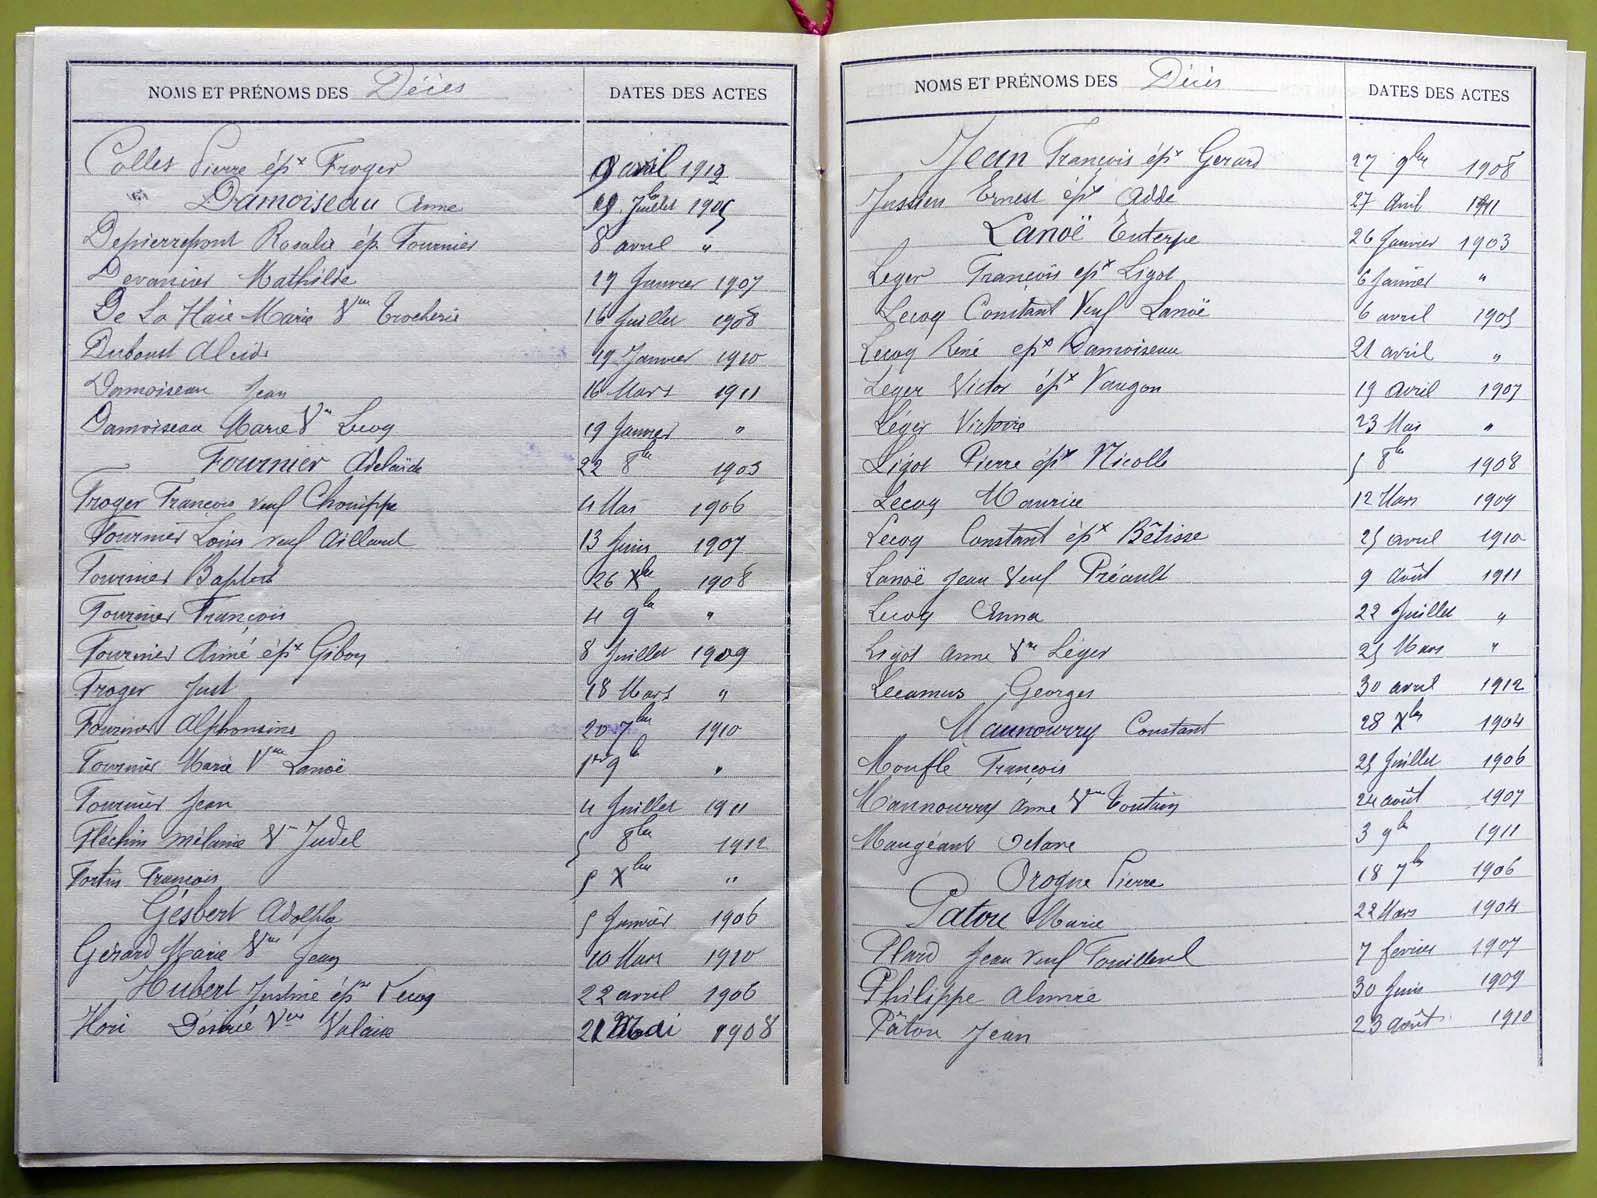 NOMS ET PRÉNOMS DES Décès DATES DES ACTES
Collet Pierre épx Froger 9 avril 1912
Damoiseau Anne 29 Juillet 1905
Depierrepont Rosalie ép Fournier 8 avril "
Devanier Mathilde 19 Janvier 1907
De La Haie Marie Vve Trocherie 16 Juillet 1908
Duboust Alcide 19 Janvier 1910
Damoiseau Jean 16 Mars 1911
Damoiseau Marie Vve Lecoq 19 Janvier "
Fournier Adelaïde 22 8bre 1905
Froger François veuf Chouippe 4 Mai 1906
Fournier Louis veuf Aillard 13 Juin 1907
Fournier Baptiste 26 Xbre 1908
Fournier François 4 9bre "
Fournier Aimé épx Giboy 8 Juillet 1909
Froger Just 18 Mars "
Fournier Alphonsine 20 7bre 1910
Fournier Marie Vve Lanoë 1er 9bre "
Fournier Jean 4 Juillet 1911
Fléchin mélanie Vve Judel 5 8bre 1912
Fortin François 5 Xbre "
Gesbert Adolphe 5 Janvier 1906
Gérard Marie Vve Jean 10 Mars 1910
Hubert Justine épse Lecoq 22 avril 1906
Hori Désirée Vve Valaise 21 Mai 1908
NOMS ET PRÉNOMS DES Décès DATES DES ACTES
Jean François épx Gerard 27 9bre 1908
Jussien Ernest épx Adde 27 Avril 1911
Lanoë Euterpe 26 Janvier 1903
Leger François épx Ligot 6 Janvier "
Lecoq Constant Veuf Lanoë 6 avril 1905
Lecoq René épx Damoiseau 21 avril "
Leger Victor épx Vaugon 19 avril 1907
Léger Victoire 23 Mai "
Ligot Pierre épx Nicolle 5 8bre 1908
Lecoq Maurice 12 Mars 1909
Lecoq Constant épx Bêtisse 25 avril 1910
Lanoë Jean Veuf Préault 9 Août 1911
Lecoq Anna 22 Juillet "
Ligot Anne Vve Léger 25 Mars "
Lecamus Georges 30 avril 1912
Mannourry Constant 28 Xbre 1904
Moufle François 25 Juillet 1906
Mannourry Anne Vve Toutain 24 août 1907
Maugéant Octave 3 9bre 1911
Orogne Pierre 18 7bre 1906
Patou Marie 22 Mars 1904
Plard Jean veuf Fouilleul 7 fevrier 1907
Philippe Almire 30 Juin 1909
Pâtou Jean 23 août 1910